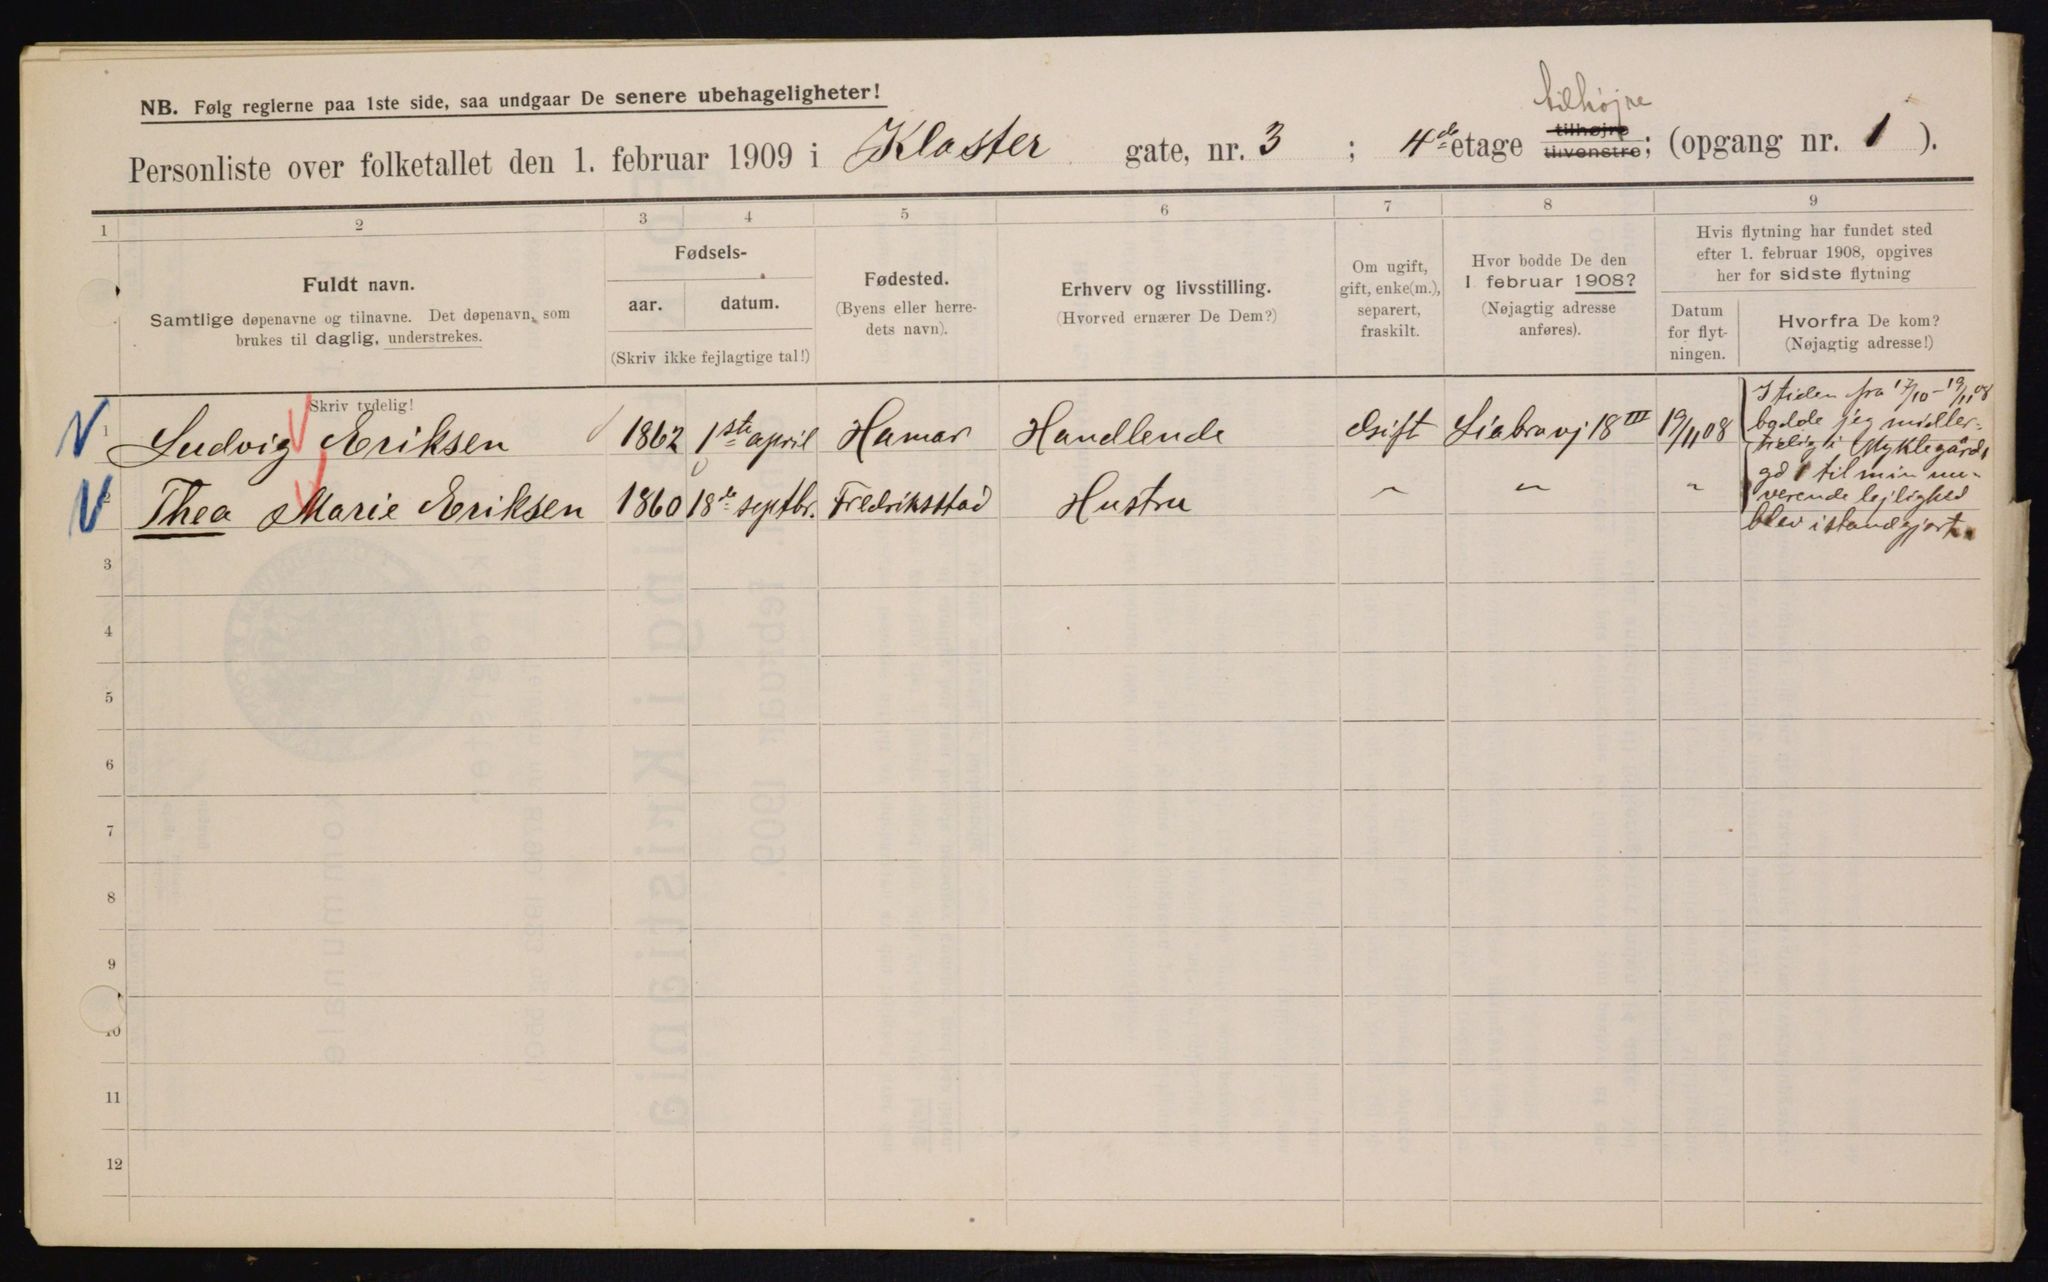 NB. Følg reglerne paa 1ste side, saa undgaar De senere ubehageligheter!
tilhøjre
Personliste over folketallet den 1. februar 1909 i Kloster gate, nr. 3 ; 4de etage tilhøjre tilvenstre; (opgang nr. 1 ).
1 2 3 4 5 6 7 8 9
Fuldt navn.
Samtlige døpenavne og tilnavne. Det døpenavn, som
brukes til daglig, understrekes.
Skriv tydelig!
Fødsels-
aar. datum.
(Skriv ikke fejlagtige tal!)
Fødested.
(Byens eller herre-
dets navn).
Erhverv og livsstilling.
(Hvorved ernærer De Dem?)
Om ugift,
gift, enke(m.),
separert,
fraskilt.
Hvor bodde De den
1 februar 1908?
(Nøjagtig adresse
anføres).
Hvis flytning har fundet sted
efter 1. februar 1908, opgives
her for sidste flytning
Datum
for flyt-
ningen.
Hvorfra De kom?
(Nøjagtig adresse!)
1 Ludvig Eriksen 1862 1ste april Hamar Handlende Gift Liabravj 18 III 19/11 08
2 Thea Marie Eriksen 1860 18de septbr. Fredriksstad Hustru " " "
I tiden fra 17/10 - 19/11 08
bodde jeg midler-
tidig i Nyklegårds
gd 1 til min nu-
værende lejlighed
blev istandgjort.
3
4
5
6
7
8
9
10
11
12